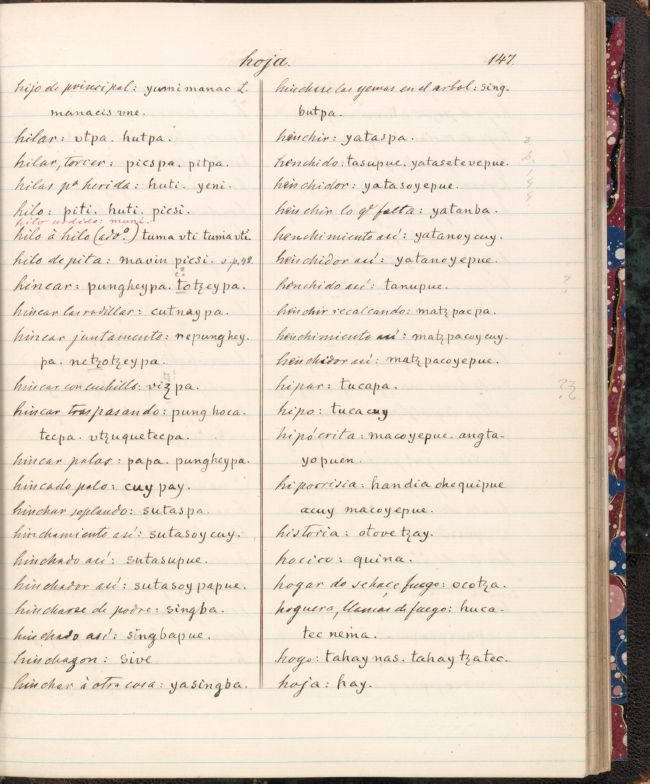 hoja.
147
hijo de principal: yumi manac L.
manacis vne.
hilar: vtpa. hutpa.
hilar, torcer: picspa. pitpa.
hilas pa herida: huti. yeni.
hilo: piti. huti. picsi.
hilo à hilo (ado.) tuma vti tuma vti.
hilo de pita: mavin picsi. s.p. 98.
hincar: pungheypa. totzeypa.
hincar las rodillas: cutnaypa.
hincar juntamente: nepunghey-
pa. netzotzeypa.
hincar con cuchillo: vizpa.
hincar traspasando: punghoca.
tecpa. vtzuquetecpa.
hincar palos: papa. pungheypa.
hincado palo: cuy pay.
hinchar soplando: sutaspa.
hinchamiento así: sutasoycuy.
hinchado así: sutasupue.
hinchador así: sutasoypapue.
hincharse de podre: singba.
hinchado así: singbapue.
hinchazon: sive
hinchar à otra cosa: yasingba.
hincharse las yemas en el arbol: sing-
butpa.
henchir: yataspa.
henchido: tasupue. yatasetevepue.
henchidor: yatasoyepue.
henchir lo qe falta: yatanba.
henchimiento así: yatanoycuy.
henchidor así: yatanoyepue.
henchido así: tanupue.
henchir recalcando: matzpacpa.
henchimiento así: matzpacoycuy.
henchidor así: matzpacoyepue.
hipar: tucapa.
hipo: tucacuy
hipócrita: macoyepue. angta-
yopuen.
hipocrisia: handia chequipue
acuy macoyepue.
historia: otovetzay.
hocico: quina.
hogar do se hace fuego: ocotza.
hoguera, llamas de fuego: huca-
tec nema.
hoyo: tahay nas. tahay tzatec.
hoja: hay.